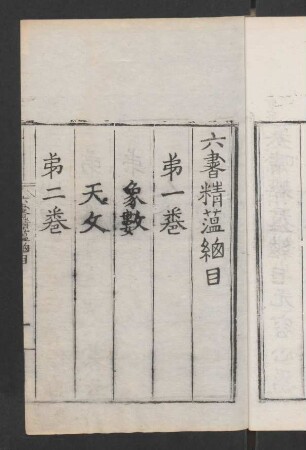 六書精薀綱目
弟一卷
象數
天文
弟二卷